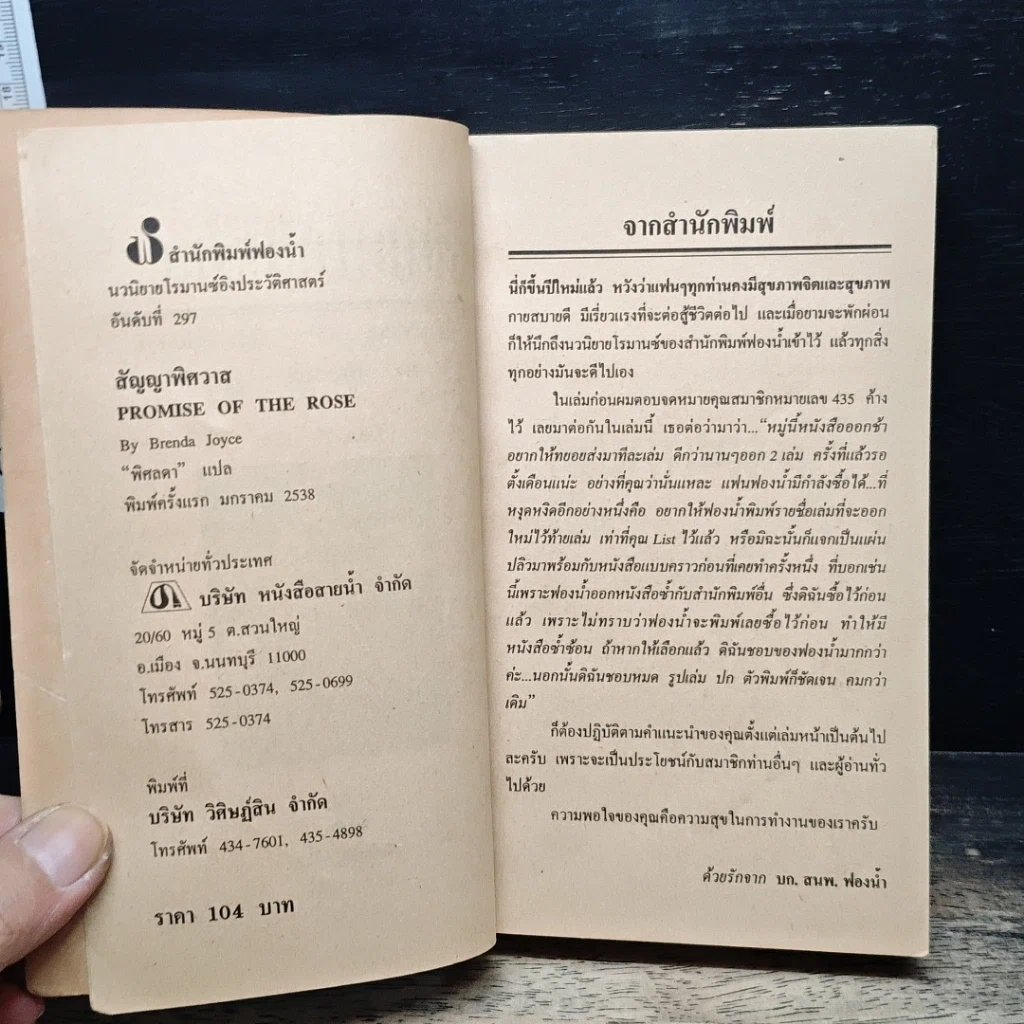 สำนักพิมพ์ฟองน้ำ
นวนิยายโรมานซ์อิงประวัติศาสตร์
อันดับที่ 297
สัญญาพิศวาส
PROMISE OF THE ROSE
By Brenda Joyce
"พิศลดา" แปล
พิมพ์ครั้งแรก มกราคม 2538
จัดจำหน่ายทั่วประเทศ
บริษัท หนังสือสายน้ำ จำกัด
20/60 หมู่ 5 ต.สวนใหญ่
อ.เมือง จ.นนทบุรี 11000
โทรศัพท์ 525-0374, 525-0699
โทรสาร 525-0374
พิมพ์ที่
บริษัท วิศิษฏ์สิน จำกัด
โทรศัพท์ 434-7601, 435-4898
ราคา 104 บาท
จากสำนักพิมพ์
นี่ก็ขึ้นปีใหม่แล้ว หวังว่าแฟนๆทุกท่านคงมีสุขภาพจิตและสุขภาพ
กายสบายดี มีเรี่ยวแรงที่จะต่อสู้ชีวิตต่อไป และเมื่อยามจะพักผ่อน
ก็ให้นึกถึงนวนิยายโรมานซ์ของสำนักพิมพ์ฟองน้ำเข้าไว้ แล้วทุกสิ่ง
ทุกอย่างมันจะดีไปเอง
ในเล่มก่อนผมตอบจดหมายคุณสมาชิกหมายเลข 435 ค้าง
ไว้ เลยมาต่อกันในเล่มนี้ เธอต่อว่ามาว่า..."หมู่นี้หนังสือออกช้า
อยากให้ทยอยส่งมาทีละเล่ม ดีกว่านานๆออก 2 เล่ม ครั้งที่แล้วรอ
ตั้งเดือนแน่ะ อย่างที่คุณว่านั่นแหละ แฟนฟองน้ำมีกำลังซื้อได้...ที่
หงุดหงิดอีกอย่างหนึ่งคือ อยากให้ฟองน้ำพิมพ์รายชื่อเล่มที่จะออก
ใหม่ไว้ท้ายเล่ม เท่าที่คุณ List ไว้แล้ว หรือมิฉะนั้นก็แจกเป็นแผ่น
ปลิวมาพร้อมกับหนังสือแบบคราวก่อนที่เคยทำครั้งหนึ่ง ที่บอกเช่น
นี้เพราะฟองน้ำออกหนังสือซ้ำกับสำนักพิมพ์อื่น ซึ่งดิฉันซื้อไว้ก่อน
แล้ว เพราะไม่ทราบว่าฟองน้ำจะพิมพ์เลยซื้อไว้ก่อน ทำให้มี
หนังสือซ้ำซ้อน ถ้าหากให้เลือกแล้ว ดิฉันชอบของฟองน้ำมากกว่า
ค่ะ...นอกนั้นดิฉันชอบหมด รูปเล่ม ปก ตัวพิมพ์ก็ชัดเจน คมกว่า
เดิม"
ก็ต้องปฏิบัติตามคำแนะนำของคุณตั้งแต่เล่มหน้าเป็นต้นไป
ละครับ เพราะจะเป็นประโยชน์กับสมาชิกท่านอื่นๆ และผู้อ่านทั่ว
ไปด้วย
ความพอใจของคุณคือความสุขในการทำงานของเราครับ
ด้วยรักจาก บก. สนพ. ฟองน้ำ